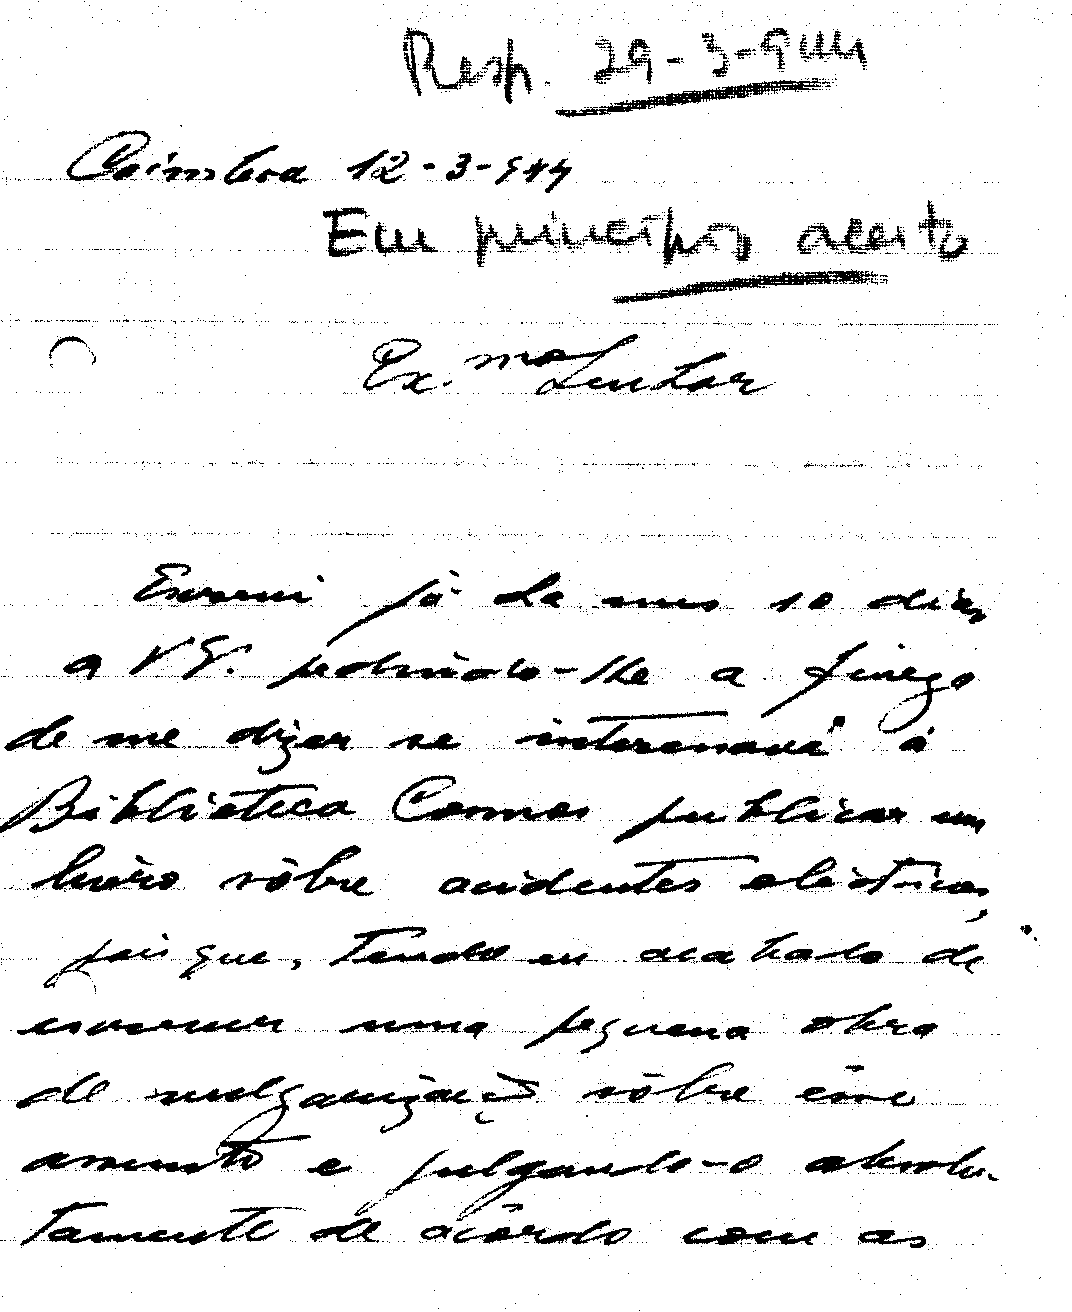 Resp. 29-3-944
Coimbra 12-3-944
Em princípio aceito
Ex.mo Senhor
Escrevi já há uns 10 dias
a V. E. pedindo-lhe a fineza
de me dizer se interessava à
Biblioteca Cosmos publicar um
livro sôbre acidentes eléctricos,
pois que, tendo eu acabado de
escrever uma pequena obra
de vulgarização sôbre êsse
assunto e julgando-o absolu-
tamente de acôrdo com as